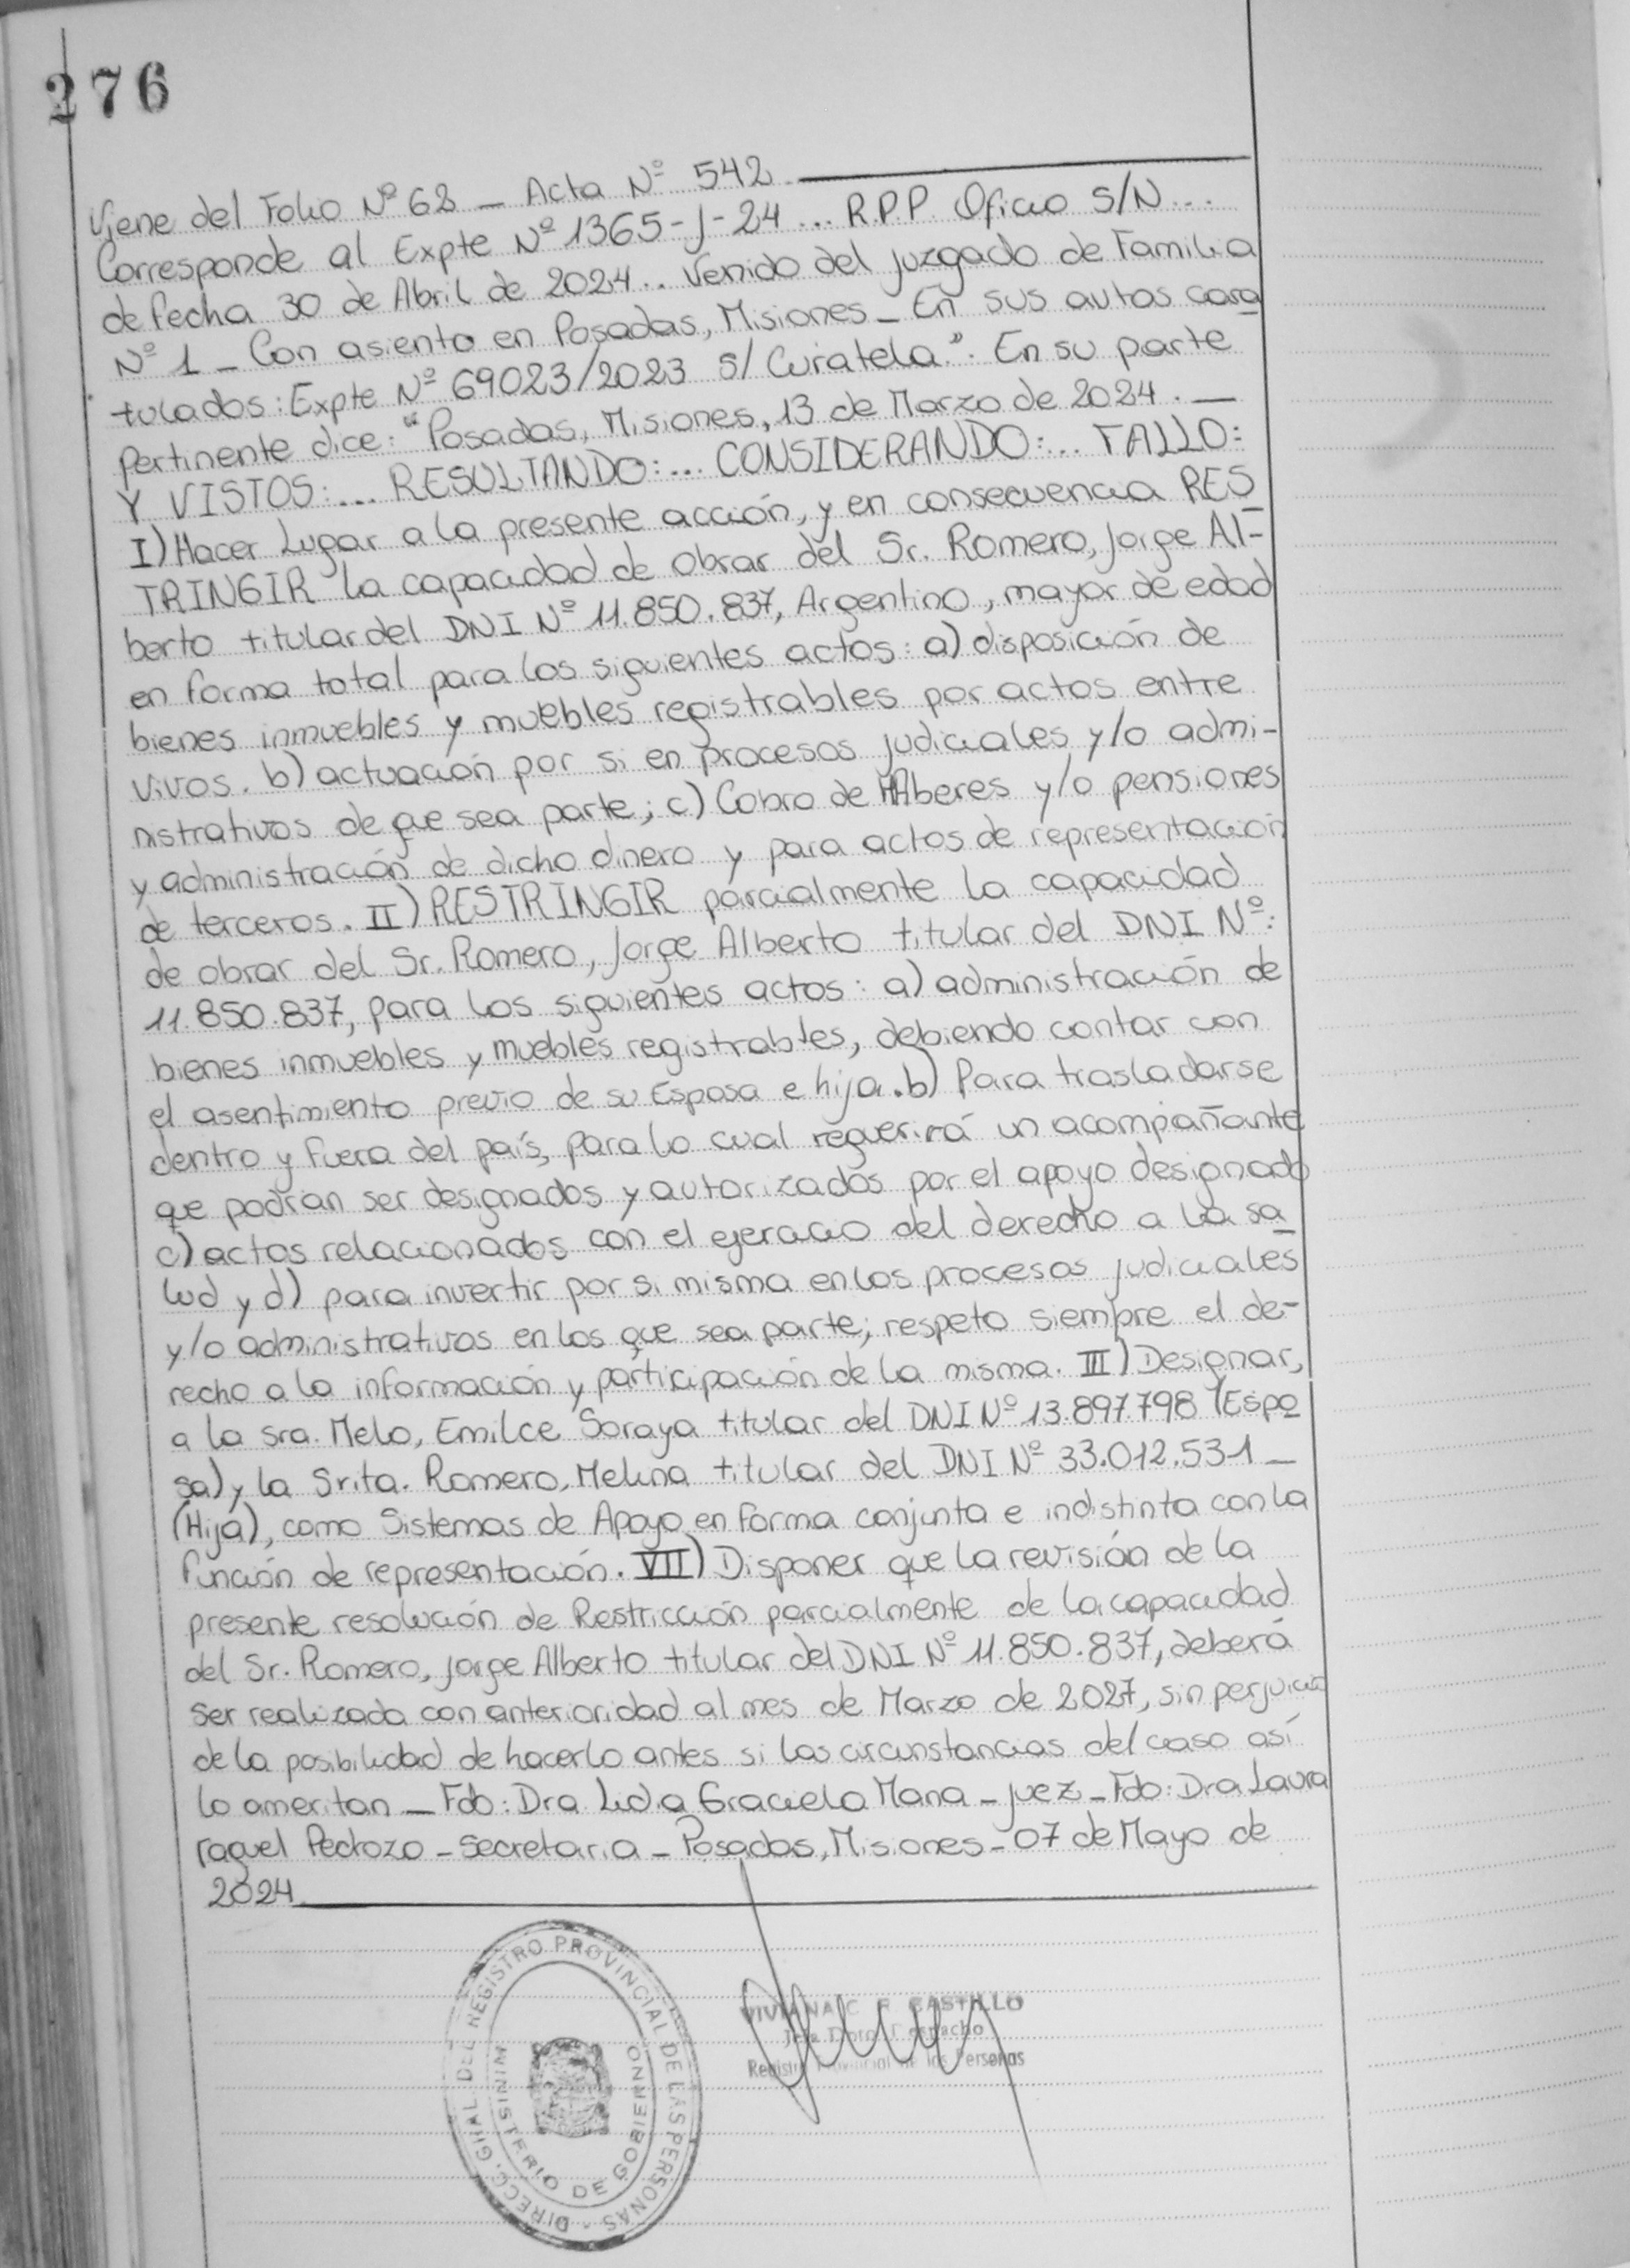 276
Viene del Folio Nº 62 - Acta Nº 542
Corresponde al Expte Nº 1365-J-24... R.P.P. Oficio S/N...
de fecha 30 de Abril de 2024.. Venido del Juzgado de Familia
Nº 1 - Con asiento en Posadas, Misiones - En sus autos cara
tulados: Expte Nº 69023/2023 S/ Curatela". En su parte
Pertinente dice: "Posadas, Misiones, 13 de Marzo de 2024. -
Y VISTOS: ... RESULTANDO: ... CONSIDERANDO: ... FALLO:
I) Hacer Lugar a la presente acción, y en consecuencia RES
TRINGIR la capacidad de obrar del Sr. Romero, Jorge Al-
berto titular del DNI Nº 11.850.837, Argentino, mayor de edad
en forma total para los siguientes actos: a) disposición de
bienes inmuebles y muebles registrables por actos entre
vivos. b) actuación por si en procesos judiciales y/o admi-
nistrativos de que sea parte; c) Cobro de HAberes y/o pensiones
y administración de dicho dinero y para actos de representación
de terceros. II) RESTRINGIR parcialmente la capacidad
de obrar del Sr. Romero, Jorge Alberto titular del DNI Nº:
11.850.837, para los siguientes actos: a) administración de
bienes inmuebles y muebles registrables, debiendo contar con
el asentimiento previo de su Esposa e hija. b) Para trasladarse
dentro y fuera del país, para lo cual requerirá un acompañante
que podrían ser designados y autorizados por el apoyo designado
c) actos relacionados con el ejercicio del derecho a la sa
lud y d) para invertir por si misma en los procesos judiciales
y/o administrativos en los que sea parte; respeto siempre el de-
recho a la información y participación de la misma. III) Designar,
a la Sra. Melo, Emilce Soraya titular del DNI Nº 13.897.798 (Espo
sa) y la Srita. Romero, Melina titular del DNI Nº 33.012.531 -
(Hija), como Sistemas de Apoyo en forma conjunta e indistinta con la
función de representación. VII) Disponer que la revisión de la
presente resolución de Restricción parcialmente de la capacidad
del Sr. Romero, Jorge Alberto titular del DNI Nº 11.850.837, deberá
ser realizada con anterioridad al mes de Marzo de 2027, sin perjuicio
de la posibilidad de hacerlo antes si las circunstancias del caso así
lo ameritan - Fdo: Dra Lidia Graciela Mana - Juez - Fdo: Dra Laura
raquel Pedrozo - Secretaria - Posadas, Misiones - 07 de Mayo de
2024
DIRECC. GRAL DEL REGISTRO PROVINCIAL DE LAS PERSONAS
MINISTERIO DE GOBIERNO
VIVIANA C. F. CASTILLO
Despacho
Registro Provincial de las Personas